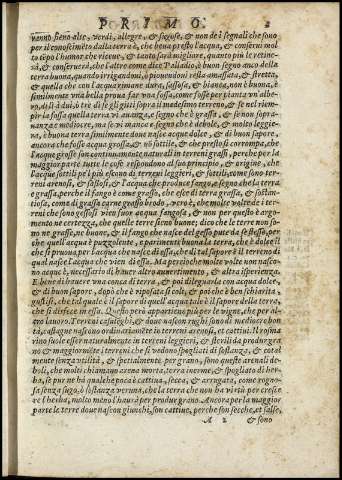 PRIMO. 2
vanno sieno alte, verdi, allegre, & sugose, & non de i segnali che sono
per il conoscimeto dalla terra è, che bena presto l'acqua, & conservi mol
to tẽpo l'humor che riceve, & tanto sarà migliore, quanto più le retine-
rà, & conserverà, che l'altro come dice Palladio, è buon segno anco della
terra buona, quando irrigandoti, ò piovendoti resta amassata, & stretta,
& quella che con l'acqua rimane dura, sassosa, & bianca, non è buona, &
similmente una bella prova far una fossa, come fosse per pianta un albe-
ro, di lì à dui, ò tre dì se gli gitti sopra il medesimo terreno, & se nel riem-
pir la fossa quella terra vi avanza, è segno che è grassa, & se non sopra-
avanza è mediocre, ma se vi manca è segno che è debole, & molto leggie-
ra, è buona terra similmente dove nasce acque dolce, & di buon sapore,
ancora che fosse acqua grossa, & nõ sottile, & che presto si corrompa, che
l'acque grosse son continuamente naturali in terreni grassi, perche per la
maggior parte tutte le cose respondono al suo principio, & origine, che
l'acque sottili pe'l più escono di terreni leggieri, & sottili, come sono terre
ni arenosi, & sassosi, & l'acqua che produce fango, è segno che la terra
è grassa, perche il fango è come grasso, che esce di terra grassa, & sottan-
tiosa, come di grassa carne grasso brodo, vero è, che molte volte de i ter-
reni che sono gessosi vien fuor acqua fangosa, & non per questo è argo-
mento ne certezza, che quelle terre sieno buone; dico che le terre non so-
no ne grasse, ne buone, & il fango che nasce del gesso pute da se stesso, per-
che quell'acqua è puzzolente, & parimenti buona la terra, che è dolce il
che si pruova per l'acqua che nasce da essa, che di tal sapore è il terreno di
qual nasce l'acqua che vien di essa. Ma percioche molte volte non nasco-
no acque è, necessario di haver altro avvertimento, & altra isperienza.
E bene di havere una conca di terra, & poi dileguarla con acqua dolce,
& di buon sapore, dopò che è riposata si coli, & poi che è ben schiarita,
gustisi, che tal quale è il sapore di quell'acqua tale è il sapore della terra,
che si disfece in essa. Questo però appartiene più per le vigne, che per al-
tro lavoro. Terreni castaleghi, & dove nascon rughi sono di mediocre bon
tà, castagne nascono ordinariamẽte in terreni arenosi, et cattivi. Il rosma
rino suole esser naturalmente in terreni leggieri, & sterili da produr gra
no & maggiormẽte i terreni che si vedono spogliati di sostanza, & total
mente senza utilità, & specialmente, per grano, sono questi arenali de-
boli, che molti chiamano arena morta, terra inerme, & spogliati di her-
ba, se pur ne ha qualche poca è cattiva, secca, & arrugata, come rogno-
sa senza sugo, ò sostanza veruna, che la terra che non ha virtù per cresce
re l'herba, molto meno l'haverà per produr grano. Ancora per la maggior
parte le terre dove nascon giunchi, son cattive, perche son secche, et salse,
A 2 & sono